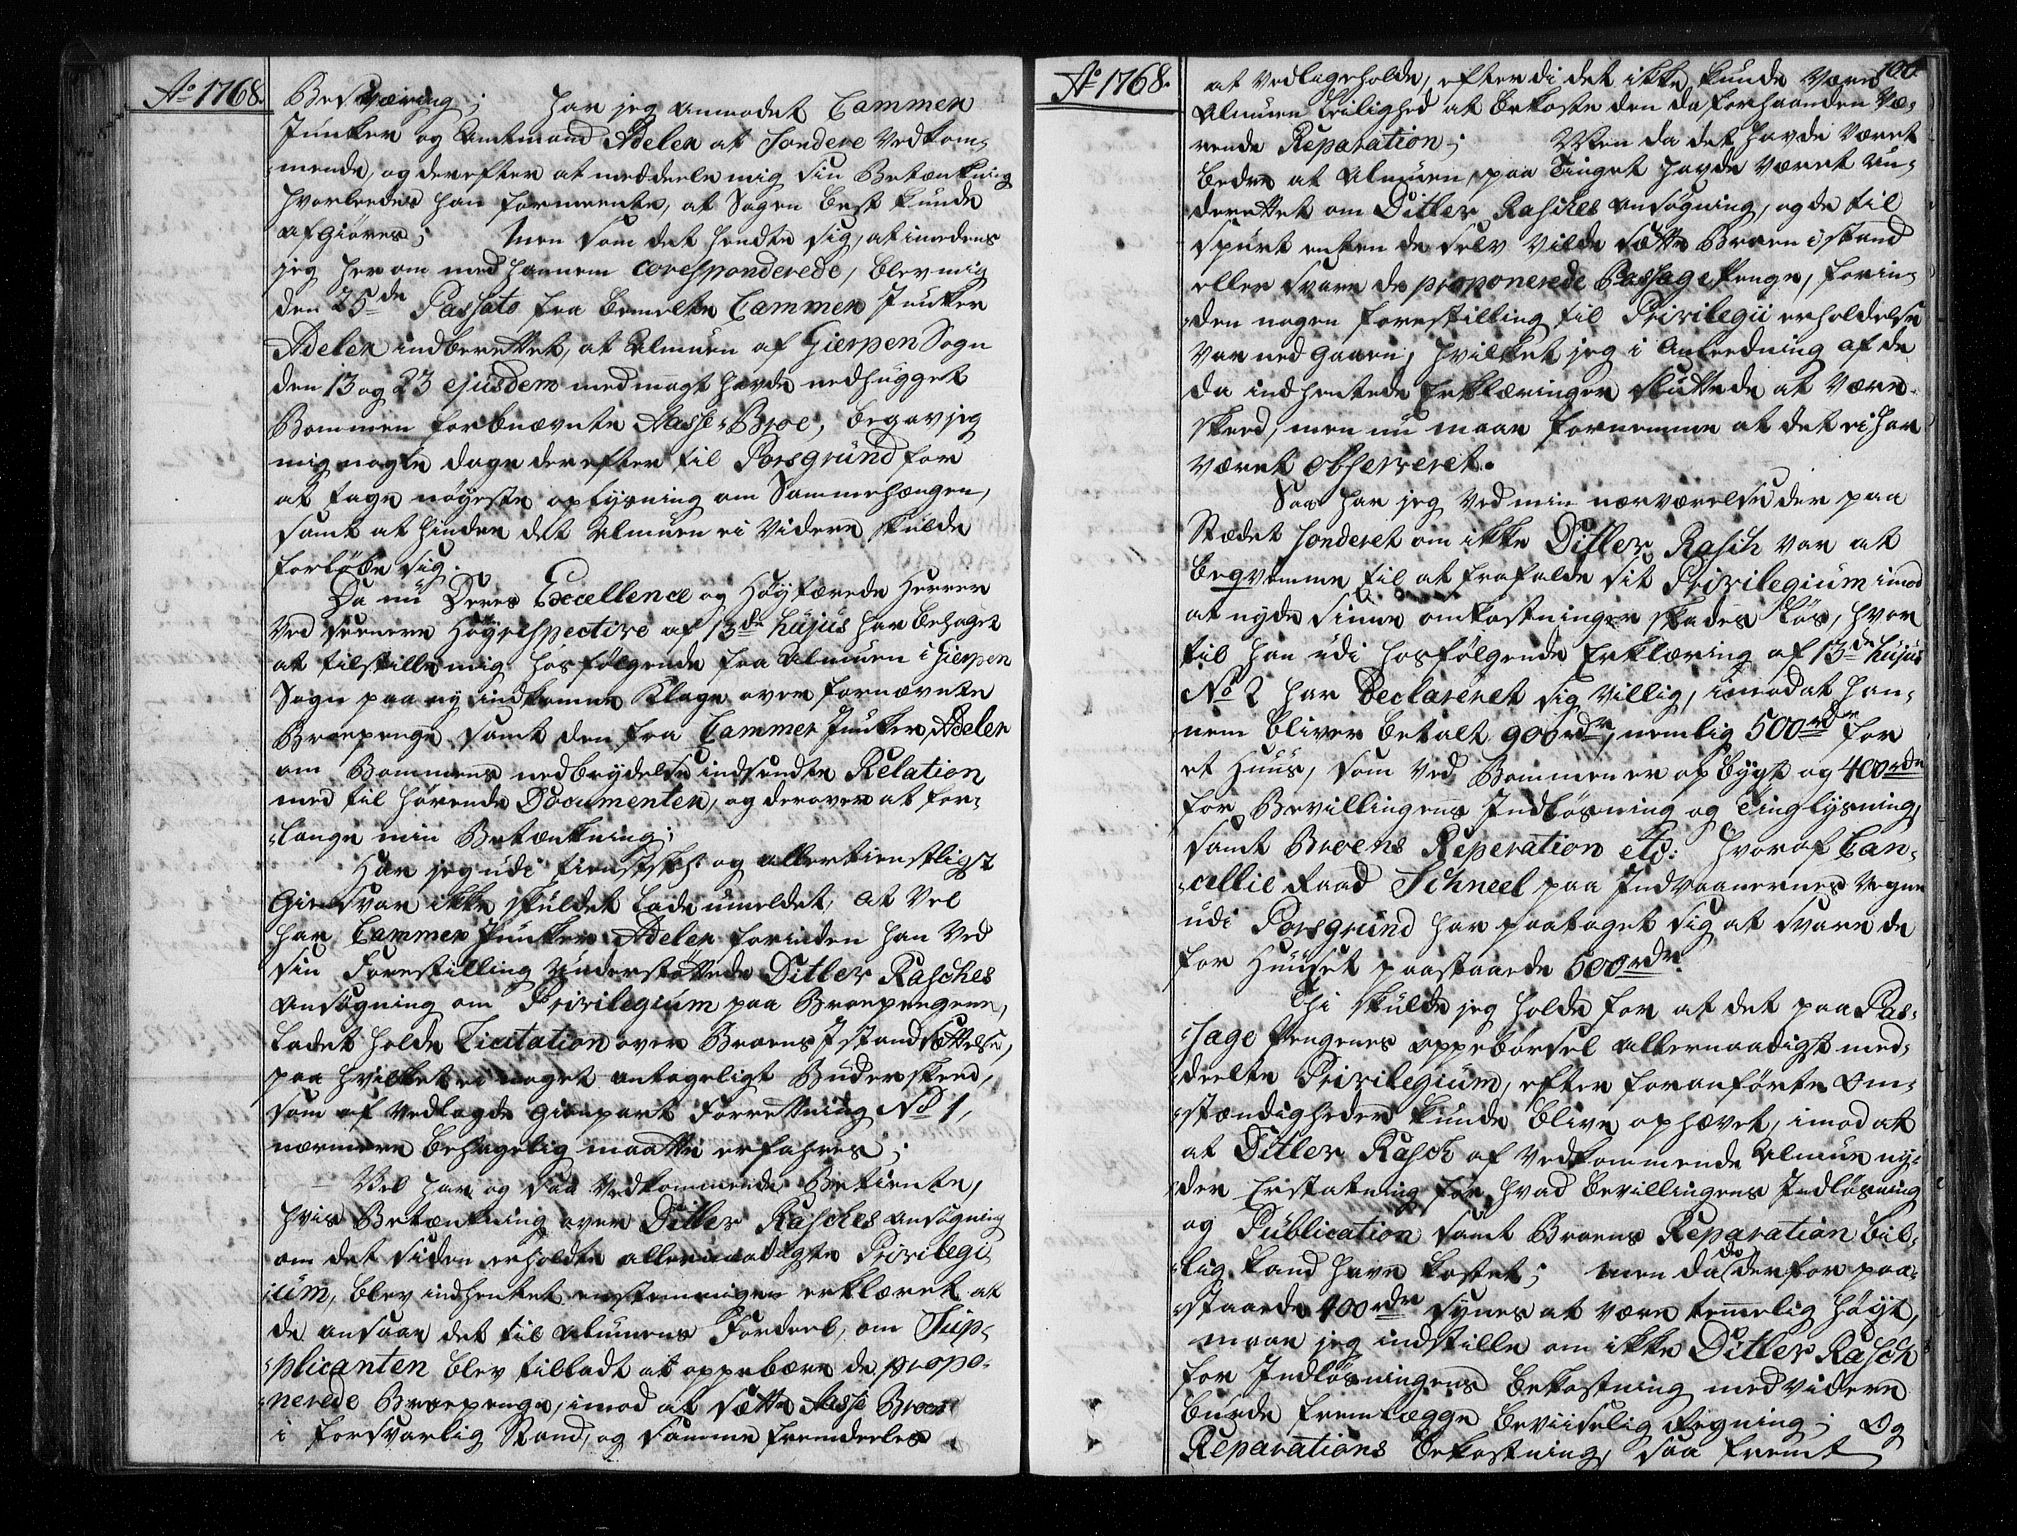 Ao 1768.
Besværing; har jeg anmodet Cammer
Junker og Amtmand Adeler at Sondere Vedkom-
mende, og derefter at meddeele mig sin Betænkning
hvorledes han formeente, at Sagen best kunde
afgiøres; Men som det hendte sig, at imedens
jeg her om med hannem coresponderede, blev mig
den 25de Passato fra bemelte Cammer Junker
Adeler indberettet, at Almuen af Gierpen Sogn
den 13 og 23 ejusdem med magt havde nedhugget
Bommen for benævnte Aasse-Broe, begav jeg
mig nogle dage derefter til Porsgrund for
at tage nøyeste oplysning om Sammenhængen,
samt at hindre det Almuen ei videre skulde
forløbe sig.
Da nu Deres Excellence og Høyærede Herrer
ved Skrivere Høyrespective af 13de hujus har behaget
at tilstille mig hosfølgende fra Almuen i Gierpen
Sogn paa ny indkomne Klage over fornævnte
Broepenge, samt den fra Cammer Junker Adeler
om Bommens nedbrydelse indsendte Relation
med til hørende Documenter, og derover at for-
lange min Betænkning;
Har jeg udi tienstsk: og allertienstligst
Giensvar ikke skullet lade umeldet, at vel
har Cammer Junker Adeler forinden han ved
sin Forestilling understøttede Ditler Rasches
Ansøgning om Privilegium paa Broepengene,
ladet holde Licitation over Broens Istandsættelse,
paa hvilket ei noget antageligt Bud er skeed,
som af vedlagde Gienpart Forretning No 1,
nærmere behagelig maatte erfahres;
Vel har og saa Vedkommende Betiente,
hvis Betænkning over Ditler Rasches Ansøgning
om det siden erholdte allernaadigste Privilegi-
um, blev indhentet eenstemmigen erklæret at
de ansaae det til Almuens Fordeel, om Sup-
plicanten blev tilladt at oppebære de propo-
nerede Broepenge, imod at sætte Aasse Broe
i forsvarlig Stand, og samme fremdeeles
Ao 1768.
100.
at vedligeholde, efterdi det ikke kunde være
Almuen Leilighed at bekoste den da forhaanden væ-
rende Reparation; Men da det havde været
bedre at Almuen paa Tinget havde været un-
derettet om Ditler Rasches Ansøgning, og de til
spurt enten de selv vilde sætte Broen i stand
eller svare de proponerede Passage Penge, forin-
den nogen forestilling til Privilegii erholdelse
var ned gaaen, hvilket jeg i Anleedning af de
da indhentede Erklæringer sluttede at være
skeed, men nu maae fornemme at det ei har
været observeret.
Saa har jeg ved min nærværelse der paa
Stædet sonderet om ikke Ditler Rasch var at
beqvemme til at frafalde sit Privilegium imod
at nyde sine omkostninger skades løs, hvor
til han udi hosfølgende Erklæring af 13de hujus
No 2 har Declareret sig villig, imod at han-
nem bliver betalt 900 rdr, nemlig 500 rdr for
et Huus, som ved Bommen er opbygt og 400 rdr
for Bevillingens Indløsning og Tinglysning,
samt Broens Reperation etc: hvoraf Can-
cellie Raad Schneel paa Indvaanernes Vegne
udi Porsgrund har paataget sig at svare de
for Huuset paastaaede 500 rdr.
Thi skulde jeg holde for at det paa Pas-
sage Pengenes oppebørsel allernaadigst med-
deelte Privilegium, efter foranførte Om-
stændigheder kunde blive ophævet, imod at
at Ditler Rasch af vedkommende Almue ny-
der Erstatning for hvad Bevillingens Indløsning
og Publication samt Broens Reparation bil-
lig kand have kostet; men da de derfor paa-
staaede 400 rdr synes at være temelig høyt,
maae jeg indstille om ikke Ditler Rasch
for Indløsningens Bekostning med videre
burde fremlægge beviislig Regning; Og
Reparations Bekostning, saa fremt